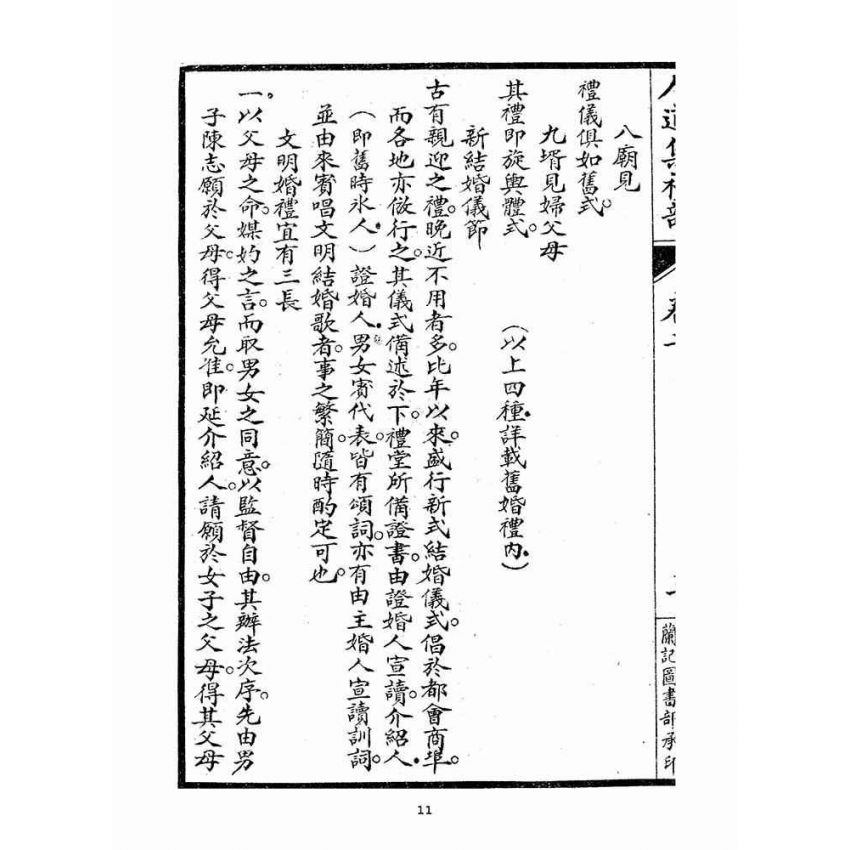 八廟見
禮儀俱如舊式。
九壻見婦父母
其禮即旋輿體式。　（以上四種詳載舊婚禮內）
新結婚儀節
古有親迎之禮。晚近不用者多。比年以來。盛行新式結婚儀式。倡於都會商埠。
而各地亦倣行之。其儀式備述於下。禮堂所備證書。由證婚人宣讀。介紹人
（即舊時氷人）證婚人。男女賓代表。皆有頌詞。亦有由主婚人宣讀訓詞。
並由來賓唱文明結婚歌者。事之繁簡。隨時酌定可也。
文明婚禮宜有三長
一。以父母之命。媒妁之言。而取男女之同意。以監督自由。其辦法次序。先由男
子陳志願於父母。得父母允准。即延介紹人。請願於女子之父母。得其父母
蘭記圖書部承印
11